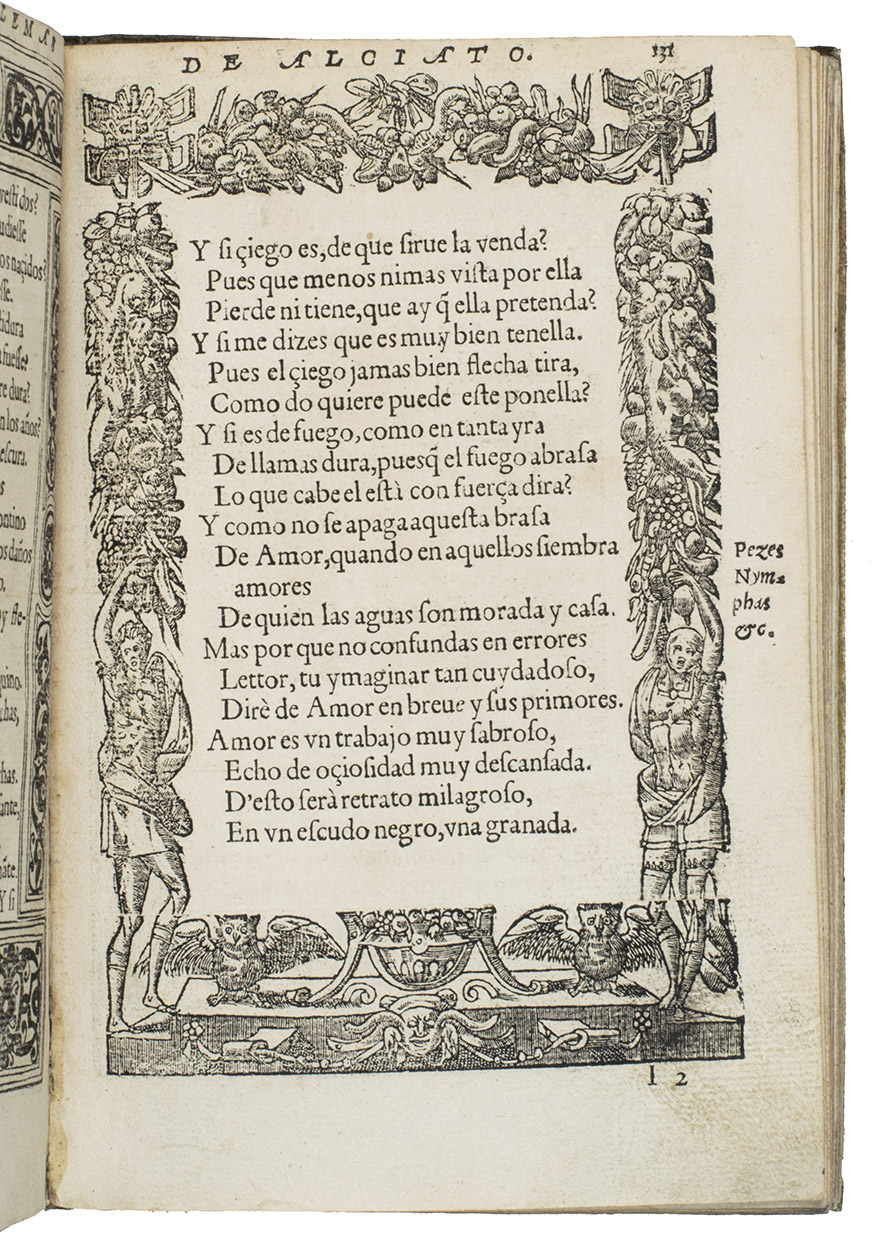 LEMAS
vesti dos?
udiesse
os naçidos?
esse.
idura
fuesse?
re dura?
n los años?
escura.
ontino
os daños
o.
y fle-
quino.
chas,
has.
ante,
nāte.
Y si
DE ALCIATO.
131
Y si çiego es, de que sirue la venda?
Pues que menos nimas vista por ella
Pierde ni tiene, que ay q̃ ella pretenda?
Y si me dizes que es muy bien tenella.
Pues el çiego jamas bien flecha tira,
Como do quiere puede este ponella?
Y si es de fuego, como en tanta yra
De llamas dura, puesq̃ el fuego abrasa
Lo que cabe el està con fuerça dira?
Y como no se apaga aquesta brasa
De Amor, quando en aquellos siembra
amores
De quien las aguas son morada y casa.
Mas por que no confundas en errores
Lettor, tu ymaginar tan cuydadoso,
Dirè de Amor en breue y sus primores.
Amor es vn trabajo muy sabroso,
Echo de oçiosidad muy descansada.
D'esto serà retrato milagroso,
En vn escudo negro, vna granada.
Pezes
Nym-
phas
&c.
I 2